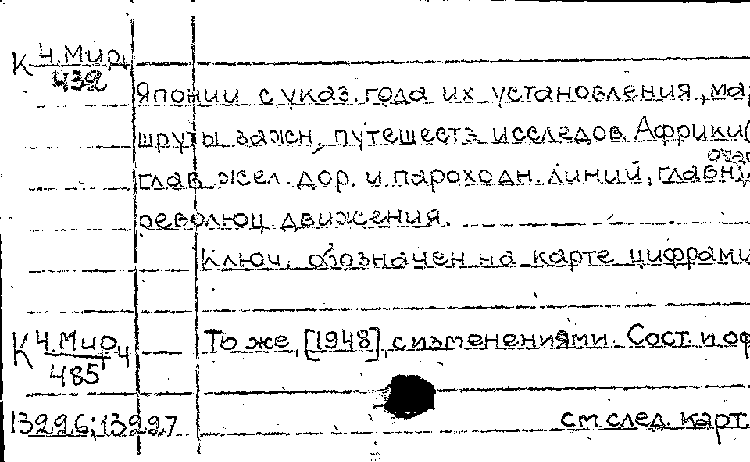 К Ч.Мир,ч
432
Японии с указ. года их установления, мар
шруты важн. путешеств. исследов. Африки(
глав. жел. дор. и пароходн. линий, главн.
революц. движения.
Ключ. обозначен на карте цифрами
К Ч.Мир,ч То же, [1948], с изменениями. Сост. и оф
485
13226; 13227 см след. карт.